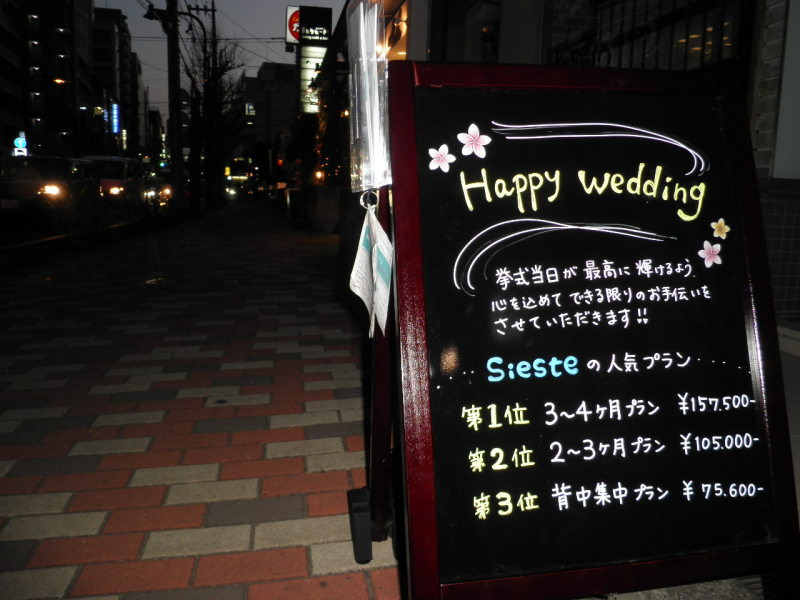 Happy wedding
挙式当日が 最高に 輝けるよう
心を込めて できる限りの お手伝いを
させていただきます!!
Siesteの人気プラン
第1位 3〜4ヶ月プラン ¥157,500-
第2位 2〜3ヶ月プラン ¥105,000-
第3位 背中集中プラン ¥75,600-